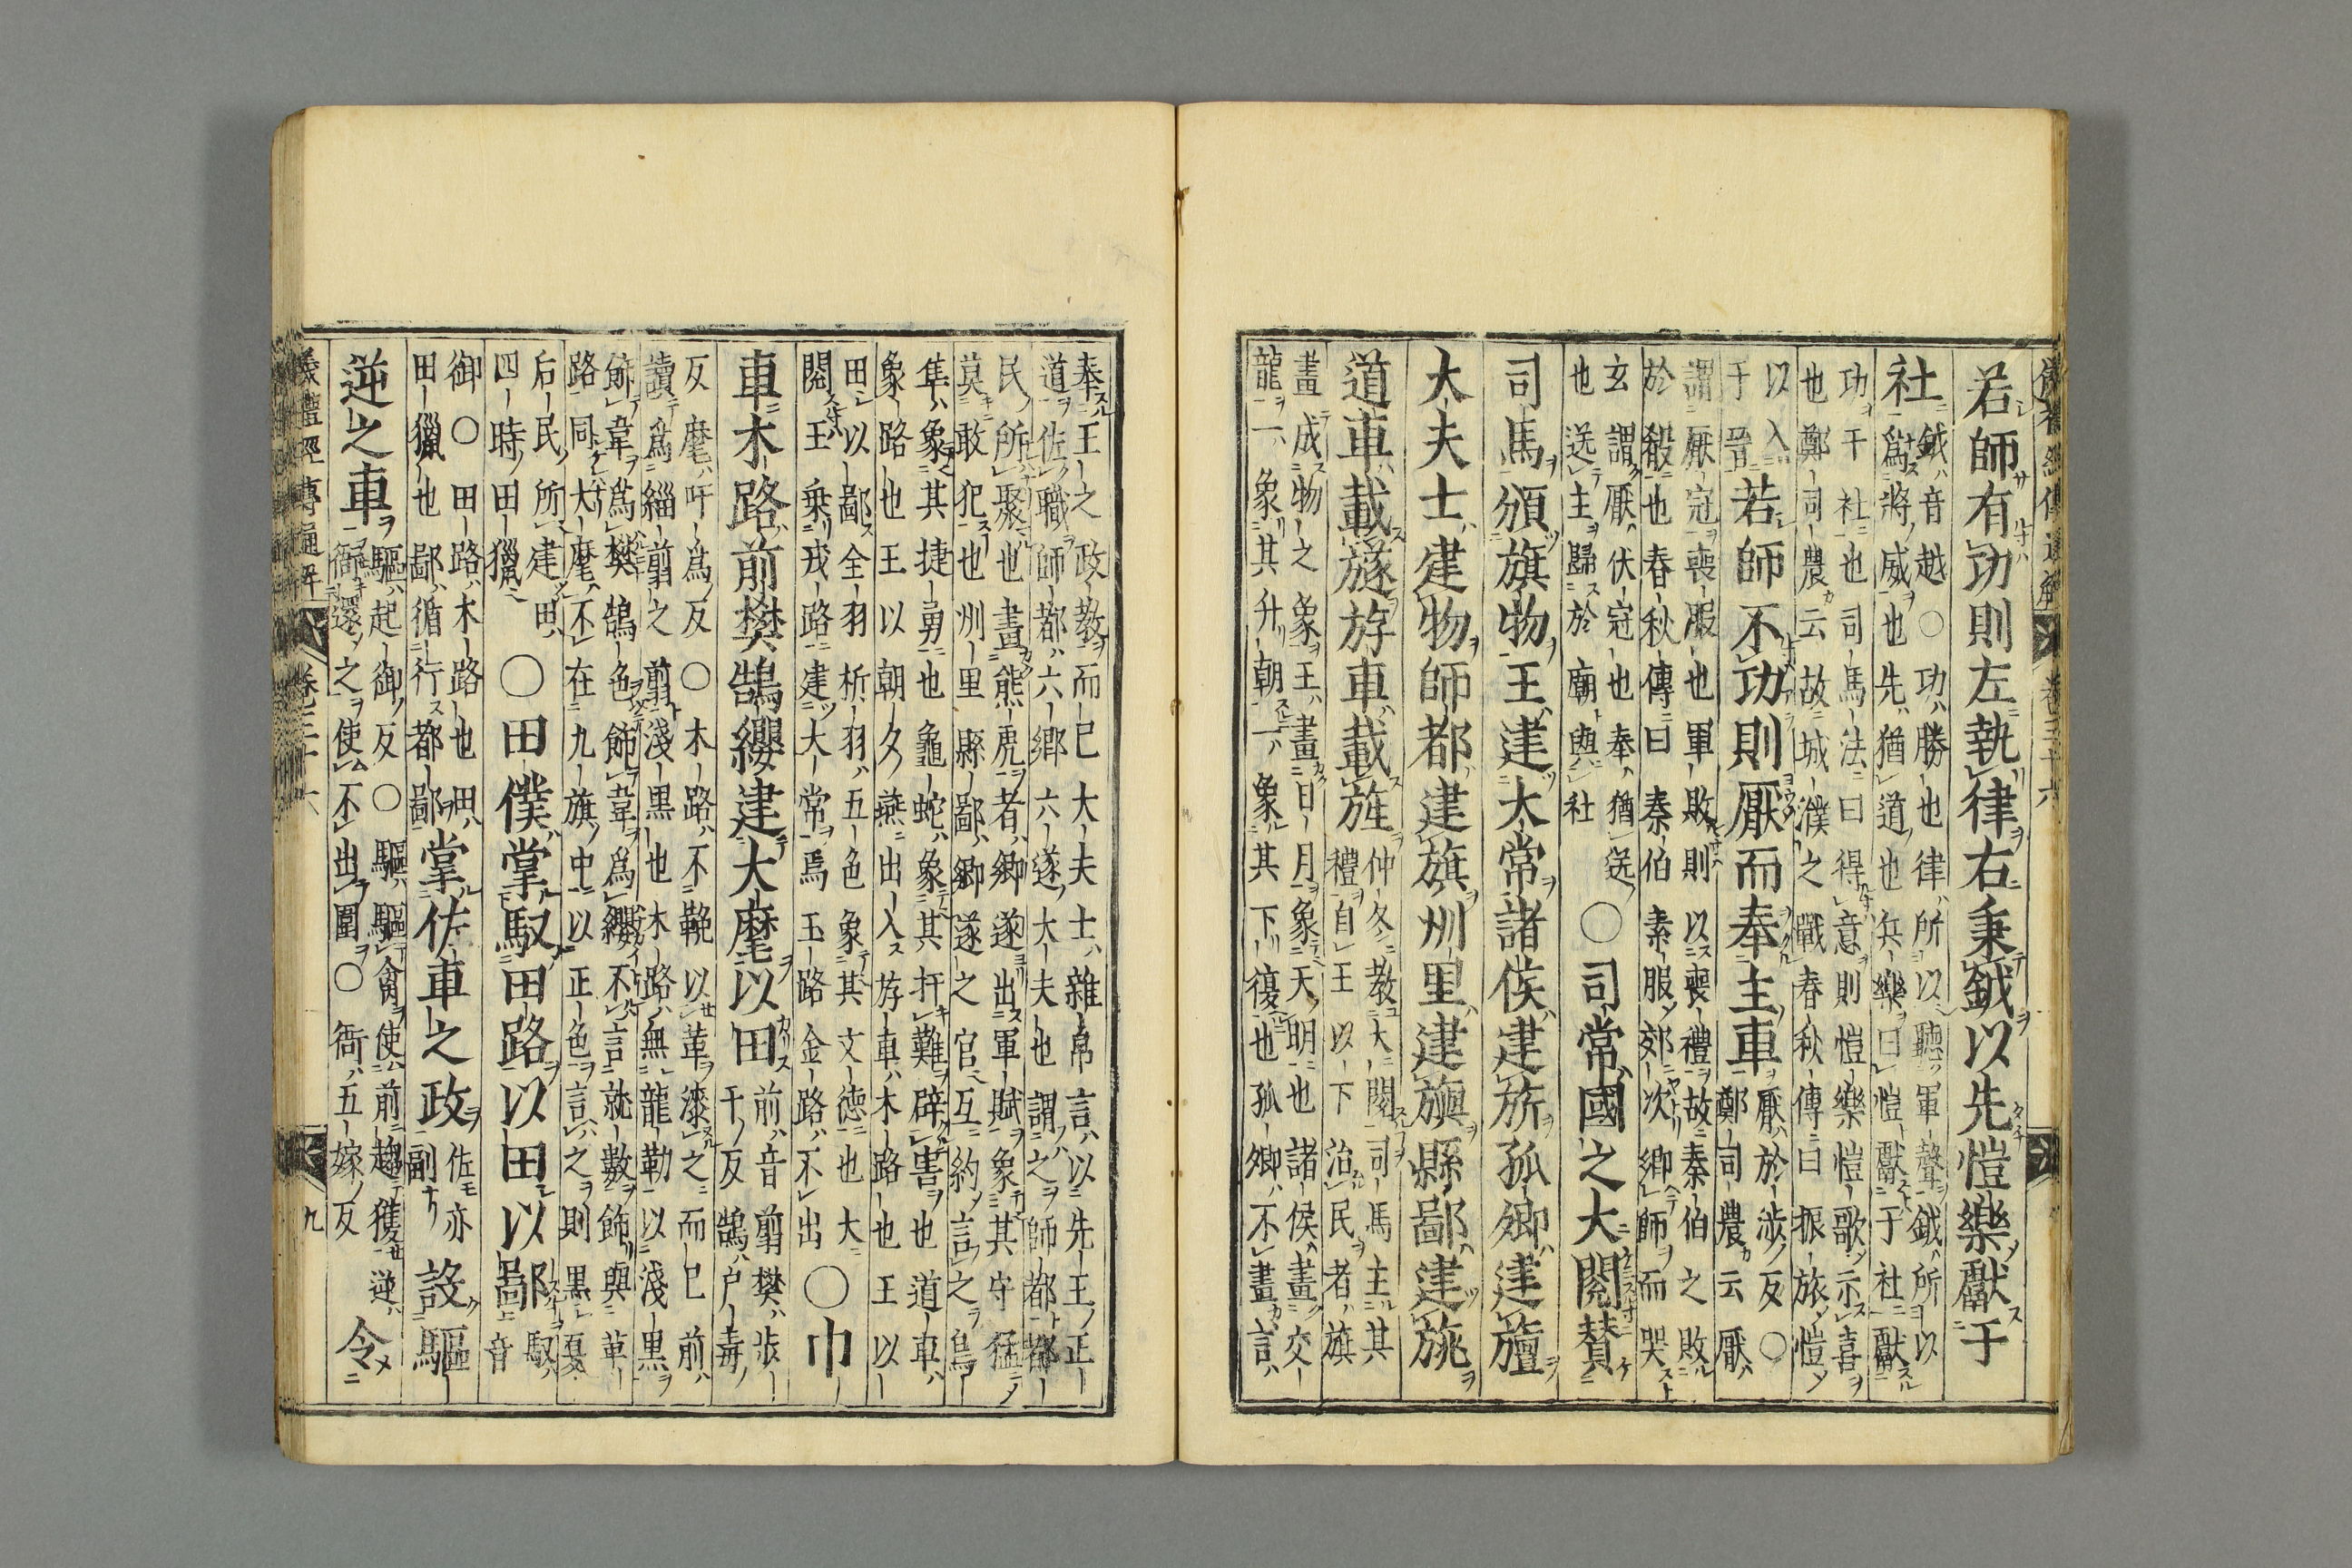 若師有功則左執律右秉鉞以先愷樂獻于
社
鉞音越○功勝也律所以聽軍聲鉞所以
爲將威也先猶道也兵樂曰愷獻于社獻
功于社也司馬法曰得意則愷樂愷歌示喜
也鄭司農云故城濮之戰春秋傳曰振旅愷
以入
于晉
若師不功則厭而奉主車
厭於涉反○
鄭司農云厭
謂厭冠喪服也軍敗則以喪禮故秦伯之敗
於殽也春秋傳曰秦伯素服郊次鄉師而哭
玄謂厭伏冠也奉猶送
也送主歸於廟與社
○司常國之大閱賛
司馬頒旗物王建太常諸侯建旂孤卿建旜
大夫士建物師都建旗州里建旟縣鄙建旐
道車載旞斿車載旌
仲冬教大閱司馬主其
禮自王以下治民者旗
畫成物之象王畫日月象天明也諸侯畫交
龍一象其升朝一象其下復也孤卿不畫言
奉王之政教而已大夫士雜帛言以先王正
道佐職師都六鄉六遂大夫也謂之師都都
民所聚也畫熊虎者鄉遂出軍賦象其守猛
莫敢犯也州里縣鄙鄉遂之官互約言之鳥
隼象其捷勇也龜蛇象其扞難辟害也道車
象路也王以朝夕燕出入斿車木路也王以
田以鄙全羽析羽五色象其文德也大
閱王乘戎路建大常焉玉路金路不出
○巾
車木路前樊鵠纓建大麾以田
前音翦樊步
干反鵠户毒
反麾吁爲反○木路不鞔以革漆之而已前
讀爲緇翦之翦淺黑也木路無龍勒以淺黑
飾韋爲樊鵠色飾韋爲纓不言就數飾與革
路同大麾不在九旗中以正色言之則黒夏
后民所建田
四時田獵
○田僕掌馭田路以田以鄙
馭
音
御○田路木路也田
田獵也鄙循行都鄙
掌佐車之政
佐亦
副
設驅
逆之車
驅起御反○驅驅禽使前趨獲逆
衙還之使不出圍○衙五嫁反
令
儀禮經傳通解
卷三十六
九